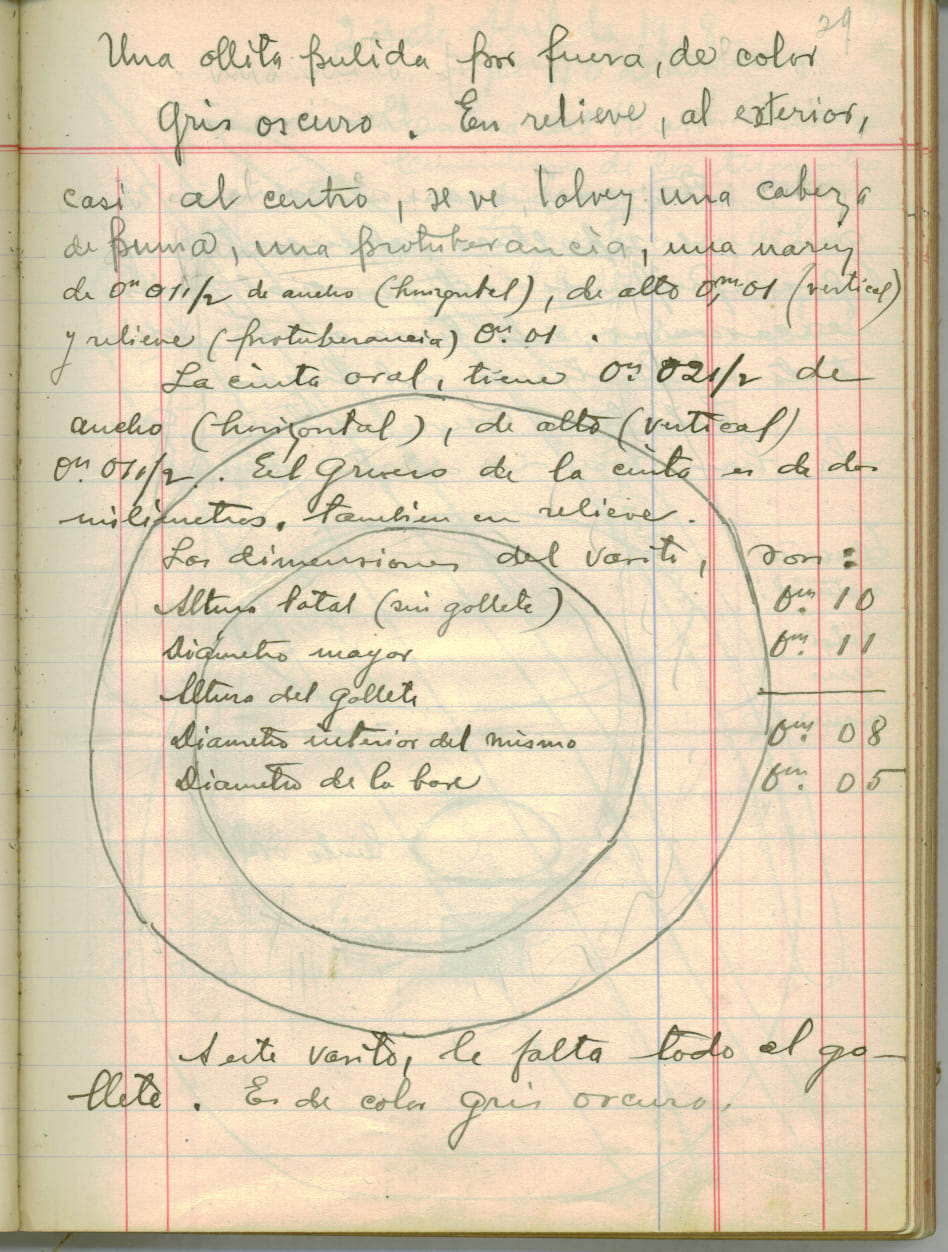 29
Una ollita pulida por fuera, de color
Gris oscuro. En relieve, al exterior,
casi al centro, se ve, talvez una cabeza
de puma, una protuberancia, una nariz
de 0m 01 1/2 de ancho (horizontal), de alto 0,m 01 (vertical)
y relieve (protuberancia) 0m. 01.
La cinta oral, tiene 0m 02 1/2 de
ancho (horizontal), de alto (vertical)
0m. 01 1/2. El Grueso de la cinta es de dos
milimetros, tambien en relieve.
Las dimensiones del vasito, son:
Altura total (sin gollete) 0m. 10
Diámetro mayor 0m. 11
Altura del gollete ———
Diametro interior del mismo 0m. 08
Diametro de la base 0m. 05
A este vasito, le falta todo el go-
llete. Es de color gris oscuro.